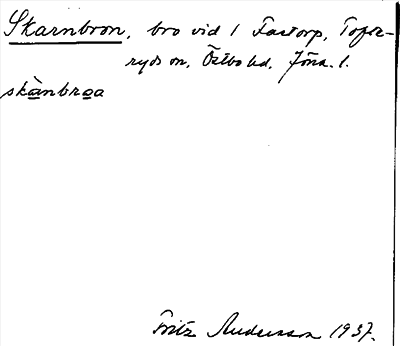 Skarnbron, bro vid 1 Fastorp, Tofte-
ryds sn, Östbo hd, Jöns. l.
skànbroa
Fritz Andersson 1937.